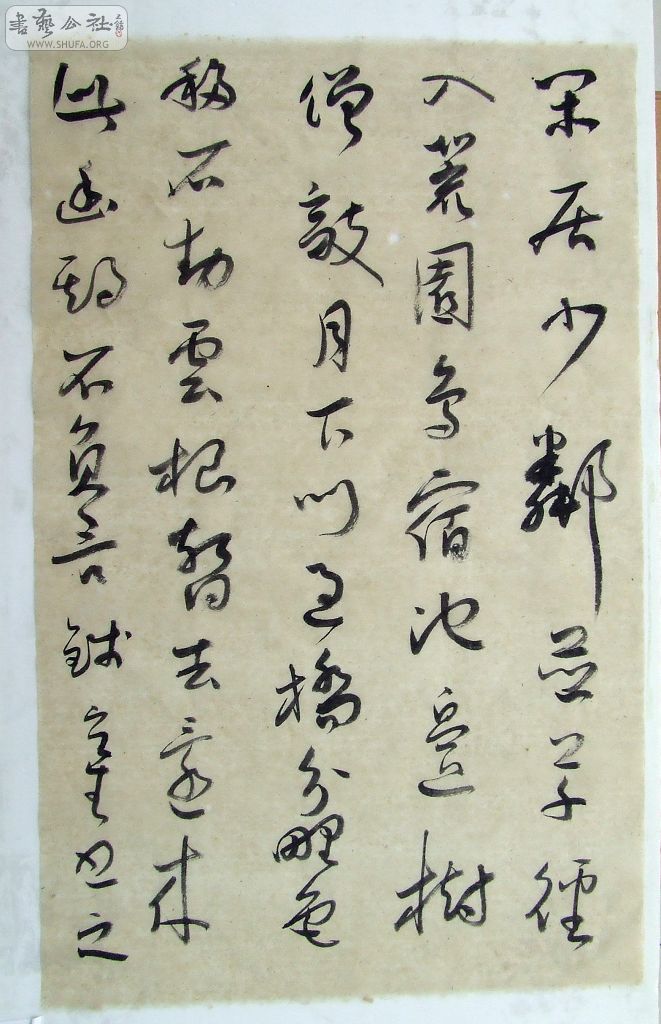 書藝公社
WWW.SHUFA.ORG
閑居少鄰並草徑
入荒園鳥宿池邊樹
僧敲月下門過橋分野色
移石動雲根暫去還來
此幽期不負言